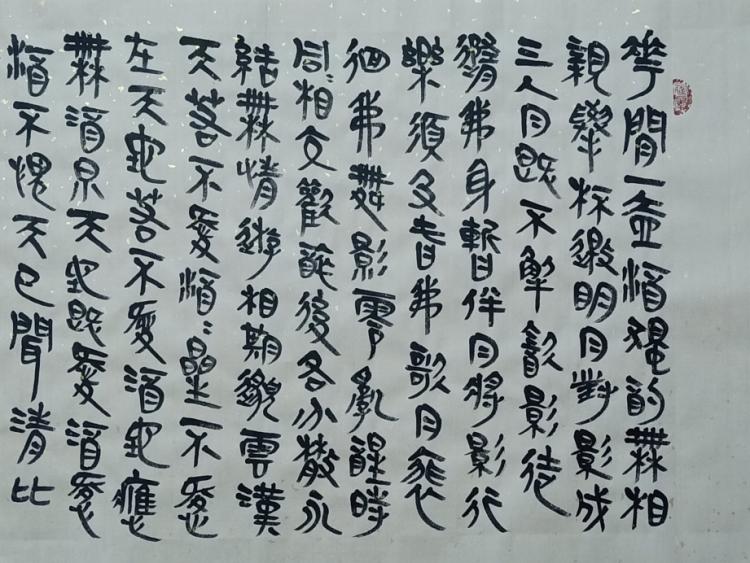 花間一壺酒獨酌無相
親舉杯邀明月對影成
三人月既不解飲影徒
隨我身暫伴月將影行
樂須及春我歌月徘
徊我舞影零亂醒時
同〻相交歡醉後各分散永
結無情遊相期邈雲漢
天若不愛酒〻星不愛
在天地若不愛酒地應
無酒泉天地既愛酒愛
酒不愧天已聞清比